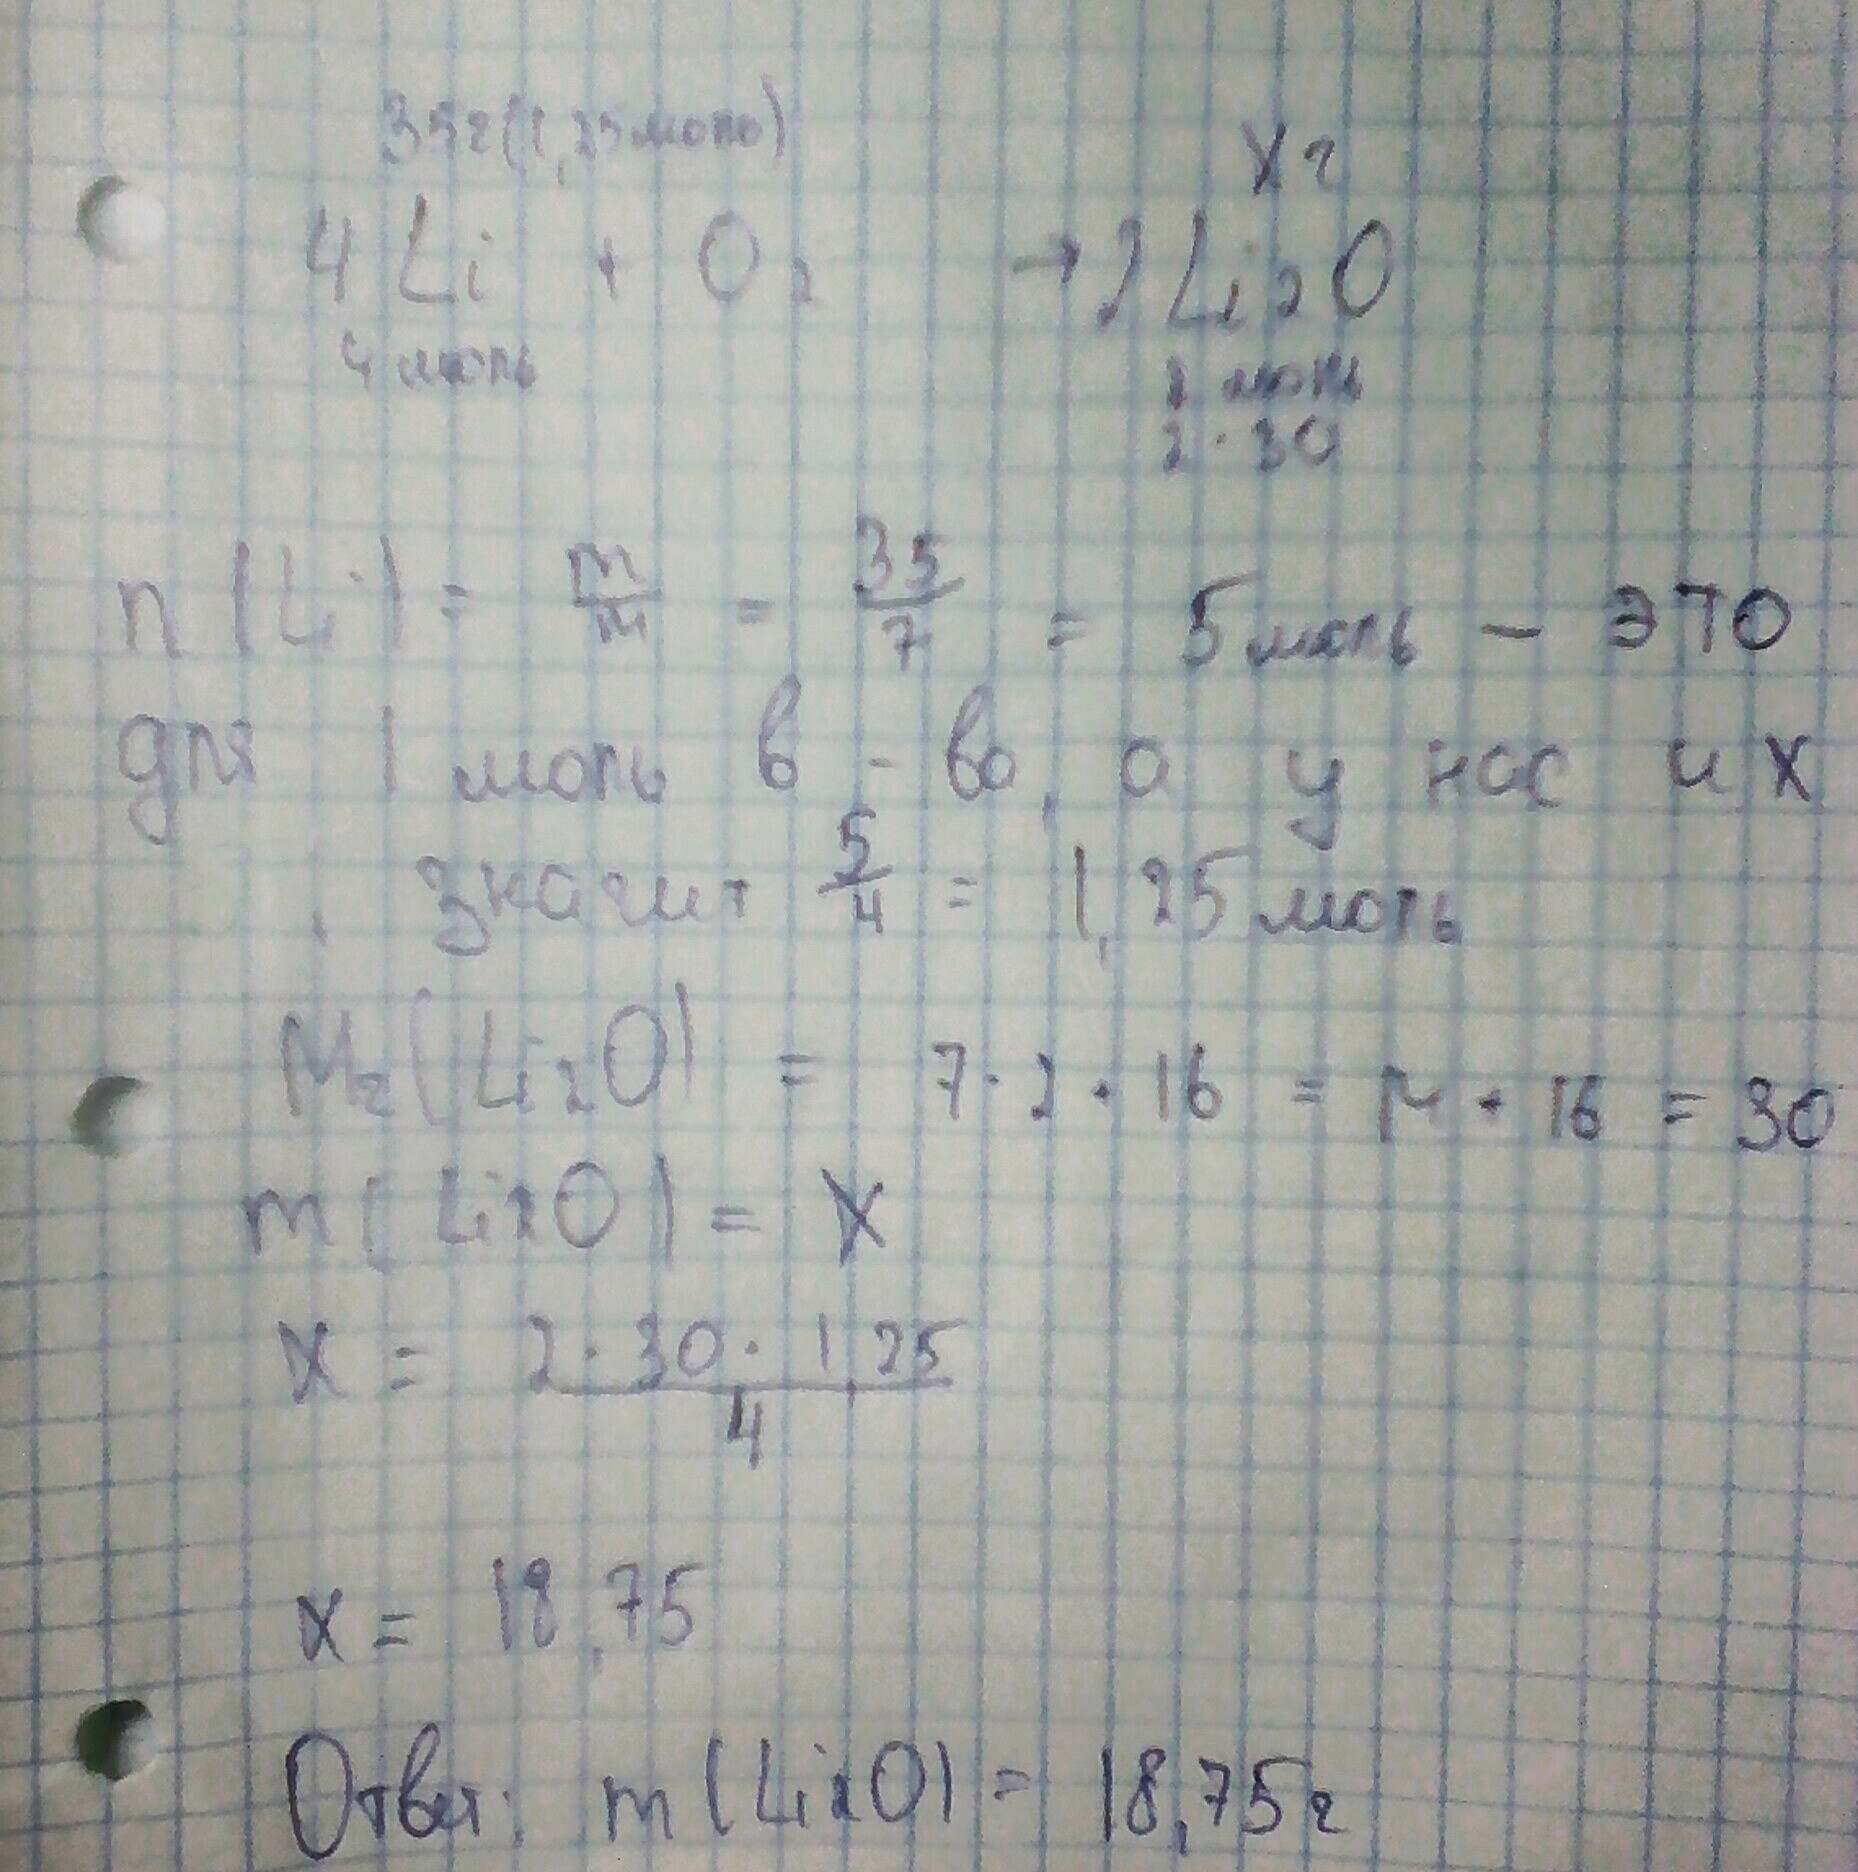 35г(1,25моль) Xг
4Li + O2 → 2Li2O
4 моль 2 моль
2·30
n(Li) = m/M = 35/7 = 5моль – это
для 1 моль в-ва, а у нас их
, значит 5/4 = 1,25моль
Mr(Li2O) = 7·2·16 = 14·16 = 30
m(Li2O) = X
X = 2·30·1,25/4
x = 18,75
Ответ: m(Li2O) = 18,75г